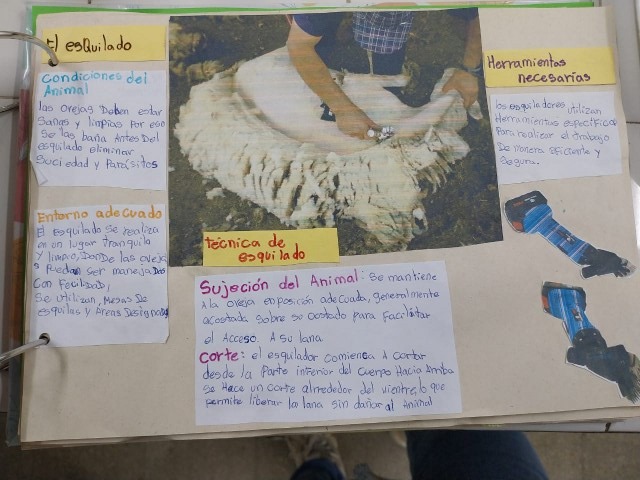 El esquilado
Condiciones del
Animal
las ovejas Deben estar
Sanas y limpias Por eso
Se las baña Antes Del
esquilado eliminar
Suciedad y Parásitos
Entorno adecuado
El esquilado se realiza
en un lugar tranquilo
y limpio, Donde las oveja
s Puedan ser manejadas
Con Facilidad,
Se utilizan, Mesas De
esquilas y Areas Designadas
técnica de
esquilado
Sujeción del Animal: Se mantiene
A la oveja en posición adecuada, generalmente
acostada sobre su costado para Facilitar
el Acceso. A su lana.
Corte: el esquilador comienza A cortar
desde la Parte inferior del Cuerpo Hacia Arriba
se Hace un corte alrrededor del vientre, lo que
permite liberar la lana sin dañar al Animal
Herramientas
necesarias
los esquiladores utilizan
Herramientas específicas
Para realizar el trabajo
De manera eficiente y
Segura.